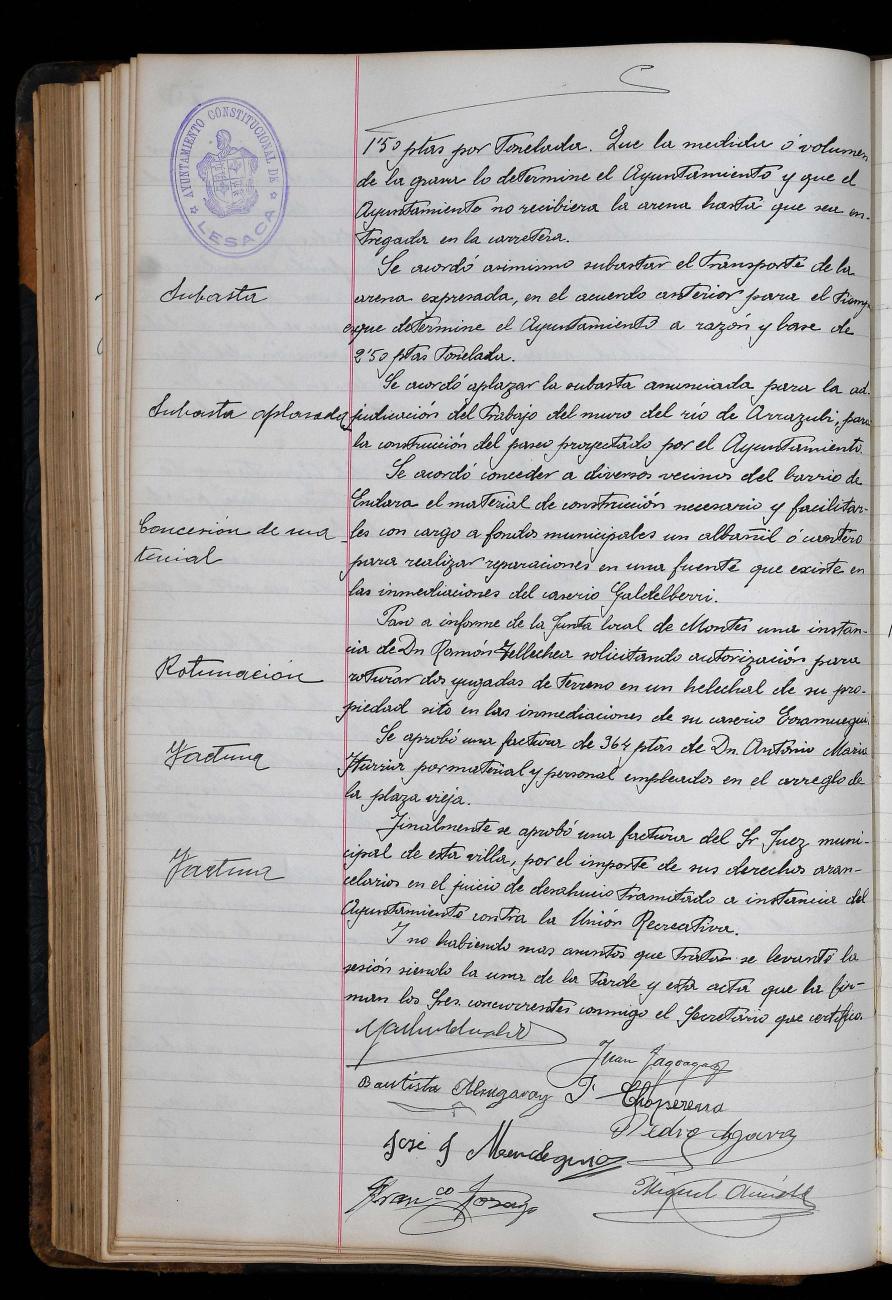 AYUNTAMIENTO CONSTITUCIONAL DE
LESACA
1'50 ptas por Tonelada. Que la medida ó volumen
de la grava lo determine el Ayuntamiento y que el
Ayuntamiento no recibiera la arena hasta que sea en-
tregada en la carretera.
Se acordó asimismo subastar el transporte de la
Subasta
arena expresada, en el acuerdo anterior para el
que determine el Ayuntamiento a razón y base de
2'50 ptas Tonelada.
Se acordó aplazar la subasta anunciada para la ad-
Subasta aplasada
judicación del trabajo del muro del río de Arrazubi, para
la construcción del paseo proyectado por el Ayuntamiento.
Se acordó conceder a diversos vecinos del barrio de
Endara el material de construcción necesario y facilitar-
Concesión de ma
terial
les con cargo a fondos municipales un albañil ó cantero
para realizar reparaciones en una fuente que existe en
las inmediaciones del caserio Galdelberri.
Paso a informe de la Junta local de Montes una instan-
cia de Dn Ramón Tellechea solicitando autorización para
Roturación
roturar dos yugadas de terreno en un helechal de su pro-
piedad sito en las inmediaciones de su caserio
Se aprobó una factura de 364 ptas de Dn. Antonio Maria
Factura
Iturria por material y personal empleados en el arreglo de
la plaza vieja.
Finalmente se aprobó una factura del Sr Juez muni-
Factura
cipal de esta villa, por el importe de sus derechos aran-
celarios en el juicio de desahucio tramitado a instancia del
Ayuntamiento contra la Unión Recreativa.
Y no habiendo mas asuntos que tratar se levantó la
sesión siendo la una de la tarde y esta acta que la fir-
man los Sres. concurrentes conmigo el Secretario que certifico.
Juan Jagoaga
Bautista J. Choperena
Pedro
José J Mendeguia
Franco
Miguel